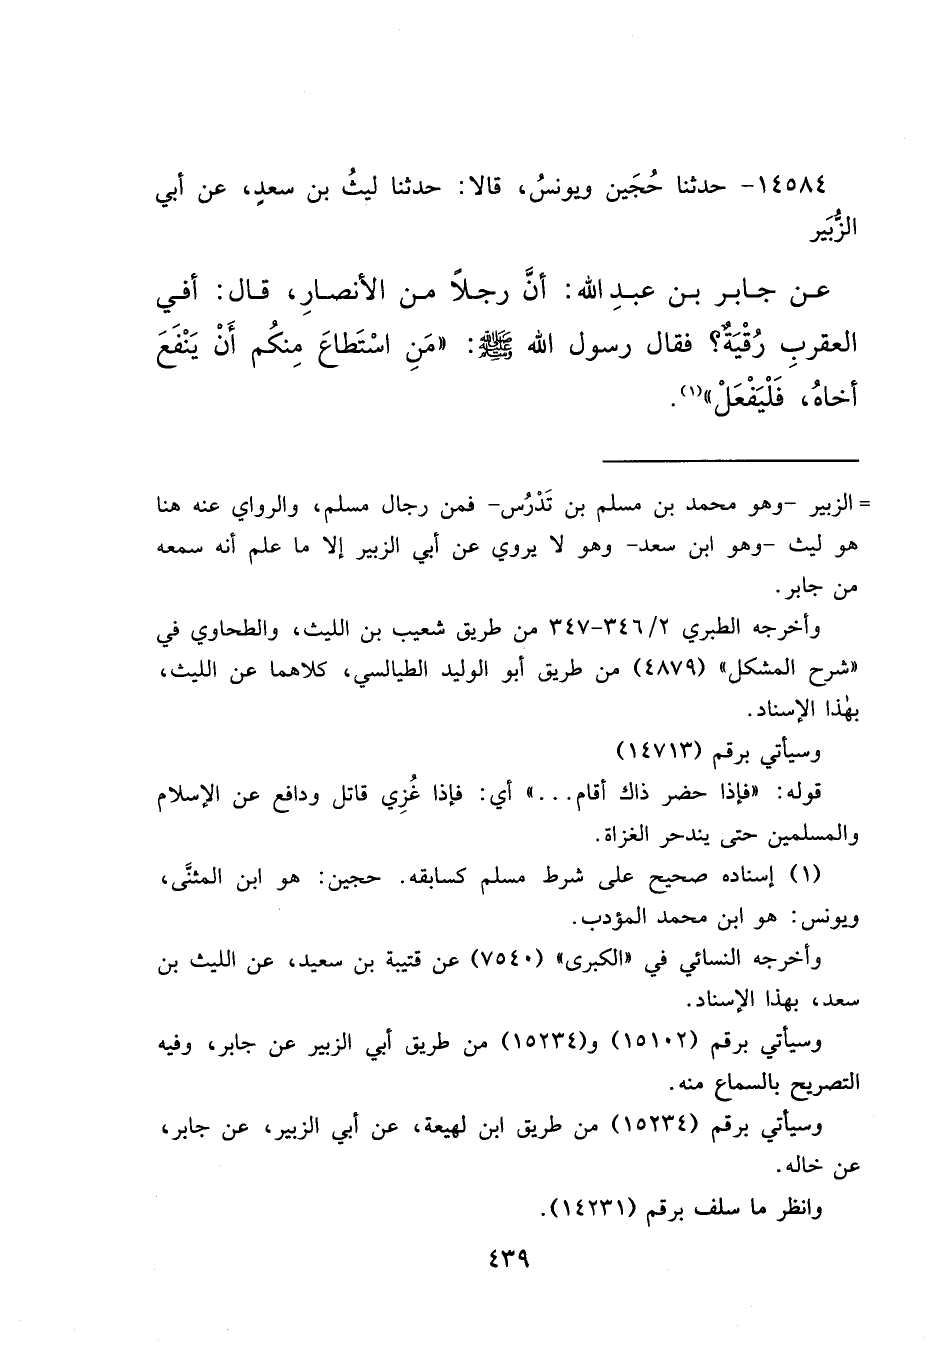 ١٤٥٨٤- حدثنا حُجَين ويونسُ، قالا: حدثنا ليثُ بن سعدٍ، عن أبي
الزُّبَير
عن جابر بن عبدِ الله: أنَّ رجلاً من الأنصارِ، قال: أفي
العقربِ رُقْيَةٌ؟ فقال رسول الله ﷺ: «مَنِ اسْتَطاعَ مِنكُم أَنْ يَنْفَعَ
أخاهُ، فَلْيَفْعَلْ»(١).
= الزبير -وهو محمد بن مسلم بن تَدْرُس- فمن رجال مسلم، والرواي عنه هنا
هو ليث -وهو ابن سعد- وهو لا يروي عن أبي الزبير إلا ما علم أنه سمعه
من جابر.
وأخرجه الطبري ٣٤٦/٢-٣٤٧ من طريق شعيب بن الليث، والطحاوي في
«شرح المشكل» (٤٨٧٩) من طريق أبو الوليد الطيالسي، كلاهما عن الليث،
بهٰذا الإسناد.
وسيأتي برقم (١٤٧١٣)
قوله: «فإذا حضر ذاك أقام...» أي: فإذا غُزِي قاتل ودافع عن الإسلام
والمسلمين حتى يندحر الغزاة.
(١) إسناده صحيح على شرط مسلم كسابقه. حجين: هو ابن المثنَّى،
ويونس: هو ابن محمد المؤدب.
وأخرجه النسائي في «الكبرى» (٧٥٤٠) عن قتيبة بن سعيد، عن الليث بن
سعد، بهذا الإسناد.
وسيأتي برقم (١٥١٠٢) و(١٥٢٣٤) من طريق أبي الزبير عن جابر، وفيه
التصريح بالسماع منه.
وسيأتي برقم (١٥٢٣٤) من طريق ابن لهيعة، عن أبي الزبير، عن جابر،
عن خاله.
وانظر ما سلف برقم (١٤٢٣١).
٤٣٩